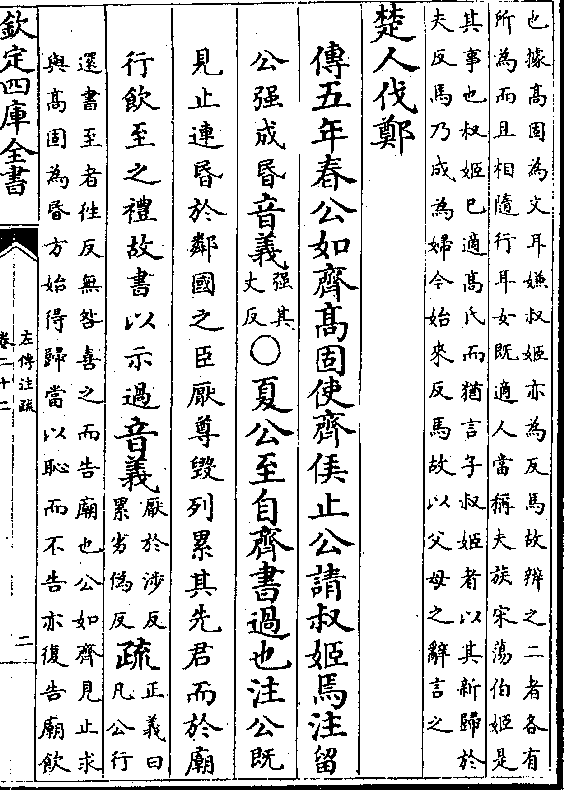 也據高固為文耳嫌叔姬亦為反馬故辨之二者各有
所為而且相隨行耳女既適人當稱夫族宋蕩伯姬是
其事也叔姬已適高氏而猶言子叔姬者以其新歸於
夫反馬乃成為婦今始來反馬故以父母之辭言之
楚人伐鄭
傳五年春公如齊髙固使齊侯止公請叔姬焉注留
公强成昏音義强其丈反○夏公至自齊書過也注公既
見止連昏於鄰國之臣厭尊毀列累其先君而於廟
行飲至之禮故書以示過音義厭於涉反累劣偽反疏正義曰凡公行
還書至者徃反無咎喜之而告廟也公如齊見止求
與髙固為昏方始得歸當以恥而不告亦復告廟飲
欽定四庫全書
左傳注疏
卷二十二
二